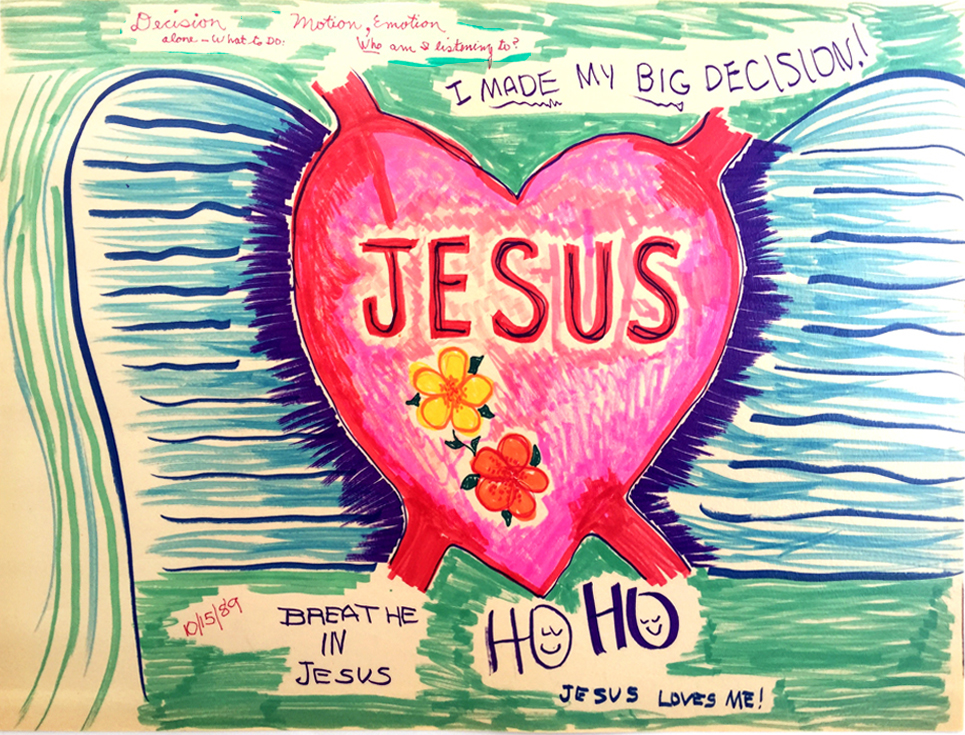 Decision Motion, Emotion
alone - What to Do: Who am I listening to?
I MADE MY BIG DECISION!
JESUS
10/15/89
BREATHE
IN
JESUS
HO HO
JESUS LOVES ME!